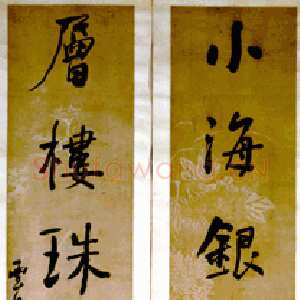 小海銀
層樓珠